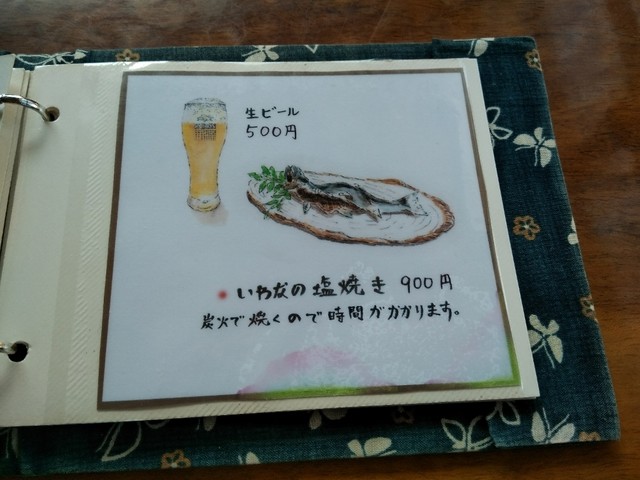 生ビール
500円
いわなの塩焼き 900円
炭火で焼くので時間がかかります。